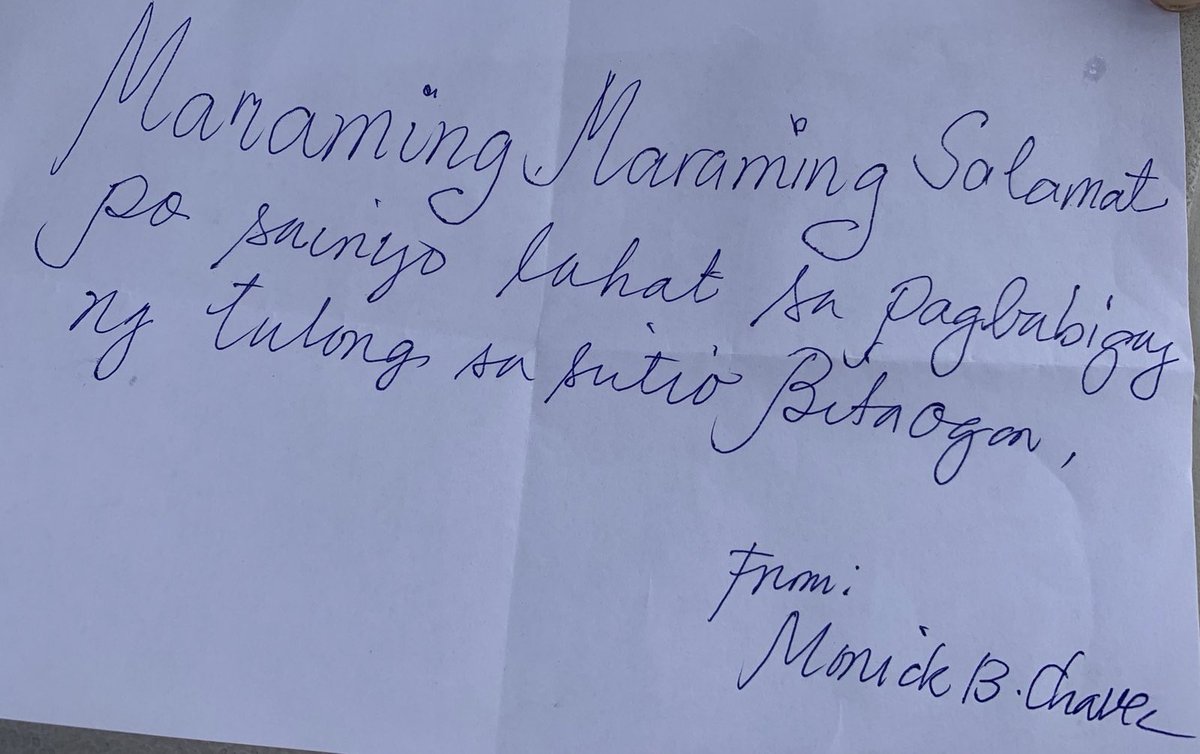 Maraming Maraming Salamat
po sainyo lahat sa pagbabigay
ng tulong sa sitio Bitaogan,
From:
Monick B. Chavez